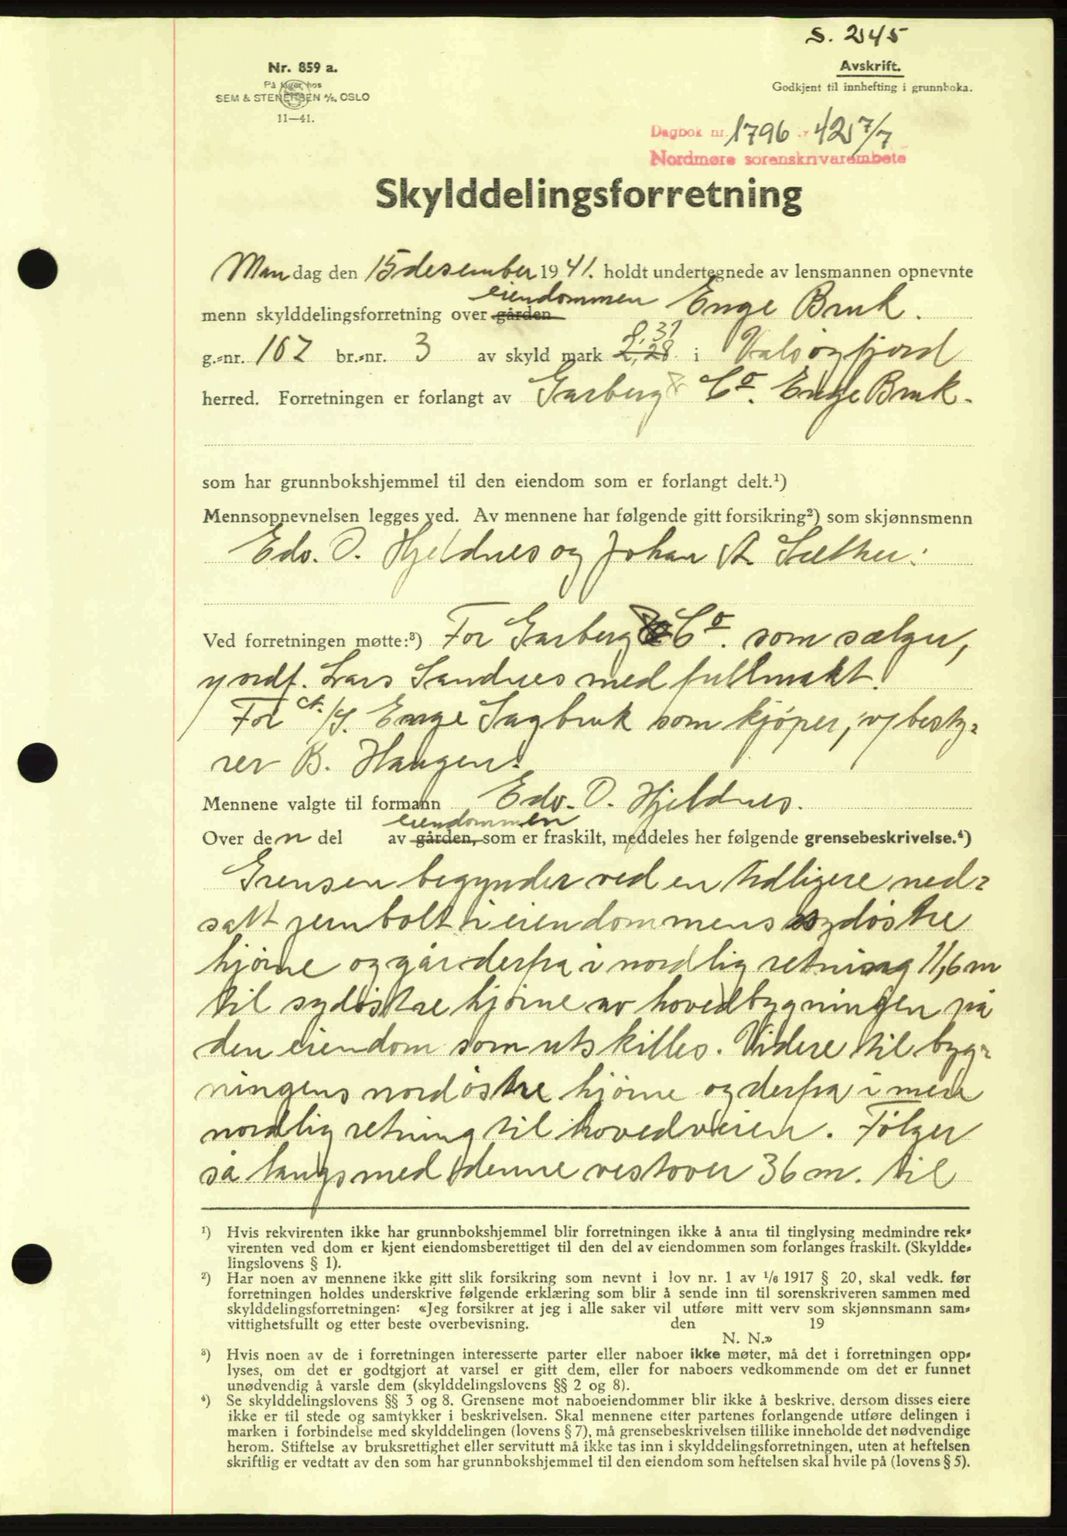 S. 245
Nr. 859 a.
På lager hos
SEM & STENERSEN A/S, OSLO
11—41.
Avskrift.
Godkjent til innhefting i grunnboka.
Dagbok nr. 1796 42 7/7
Nordmøre sorenskrivarembete
Skylddelingsforretning
Mandag den 15 desember 1941. holdt undertegnede av lensmannen opnevnte
menn skylddelingsforretning over gården eiendommen Enge Bruk.
g.-nr. 167 br.-nr. 3 av skyld mark 2,28 i Valsøyfjord
herred. Forretningen er forlangt av Garberg & Co. Enge Bruk.
som har grunnbokshjemmel til den eiendom som er forlangt delt.¹)
Mennsopnevnelsen legges ved. Av mennene har følgende gitt forsikring²) som skjønnsmenn
Edv. O. Hjeldnes og Johan A. Sæther.
Ved forretningen møtte:³) For Garberg & Co. som sælger,
ordf. Lars Sandnes med fullmakt.
For A/S. Enge Sagbruk som kjøper, v/ besty-
rer B. Haugen.
Mennene valgte til formann Edv. O. Hjeldnes.
Over den del av gården, eiendommen som er fraskilt, meddeles her følgende grensebeskrivelse.⁴)
Grensen begynder ved en tidligere ned-
satt jernbolt i eiendommens sydøstre
hjørne og går derfra i nordlig retning 11,6 m
til sydøstre hjørne av hovedbygningen på
den eiendom som utskilles. Videre til byg-
ningens nordøstre hjørne og derfra i mere
nordlig retning til hovedveien. Følger
så langs med denne vestover 36 m. til
¹) Hvis rekvirenten ikke har grunnbokshjemmel blir forretningen ikke å anta til tinglysing medmindre rek-
virenten ved dom er kjent eiendomsberettiget til den del av eiendommen som forlanges fraskilt. (Skyldde-
lingslovens § 1).
²) Har noen av mennene ikke gitt slik forsikring som nevnt i lov nr. 1 av 1/6 1917 § 20, skal vedk. før
forretningen holdes underskrive følgende erklæring som blir å sende inn til sorenskriveren sammen med
skylddelingsforretningen: «Jeg forsikrer at jeg i alle saker vil utføre mitt verv som skjønnsmann sam-
vittighetsfullt og etter beste overbevisning. den 19
N. N.»
³) Hvis noen av de i forretningen interesserte parter eller naboer ikke møter, må det i forretningen opp-
lyses, om det er godtgjort at varsel er gitt dem, eller for naboers vedkommende om det er funnet
unødvendig å varsle dem (skylddelingslovens §§ 2 og 8).
⁴) Se skylddelingslovens §§ 3 og 8. Grensene mot naboeiendommer blir ikke å beskrive, dersom disses eiere
ikke er til stede og samtykker i beskrivelsen. Skal mennene etter partenes forlangende utføre delingen i
marken i forbindelse med skylddelingen (lovens § 7), må grensebeskrivelsen tillike inneholde det nødvendige
herom. Stiftelse av bruksrettighet eller servitutt må ikke tas inn i skylddelingsforretningen, uten at heftelsen
skriftlig er vedtatt av den som har grunnbokshjemmel til den eiendom som heftelsen skal hvile på (lovens § 5).